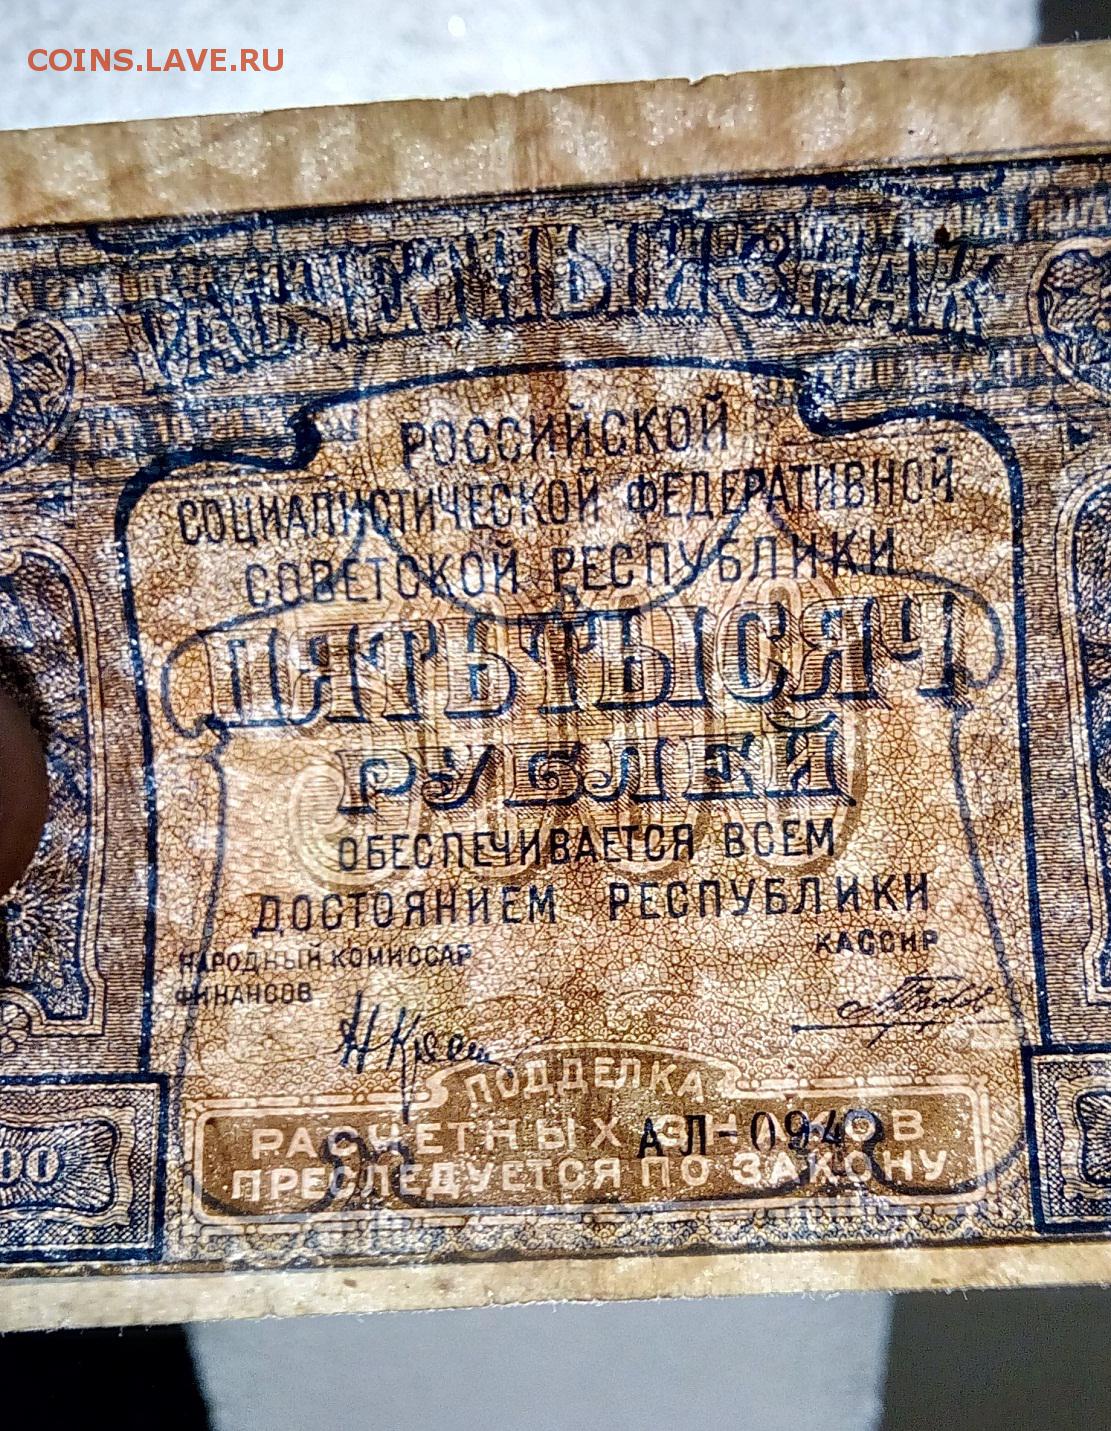 COINS.LAVE.RU
РАСЧЕТНЫЙ ЗНАК
РОССИЙСКОЙ
СОЦИАЛИСТИЧЕСКОЙ ФЕДЕРАТИВНОЙ
СОВЕТСКОЙ РЕСПУБЛИКИ
ПЯТЬ ТЫСЯЧ
РУБЛЕЙ
ОБЕСПЕЧИВАЕТСЯ ВСЕМ
ДОСТОЯНИЕМ РЕСПУБЛИКИ
НАРОДНЫЙ КОМИССАР
ФИНАНСОВ
КАССИР
ПОДДЕЛКА
РАСЧЕТНЫХ ЗНАКОВ
АЛ-094
ПРЕСЛЕДУЕТСЯ ПО ЗАКОНУ